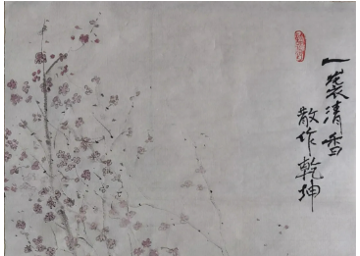 一袭清香
散作乾坤